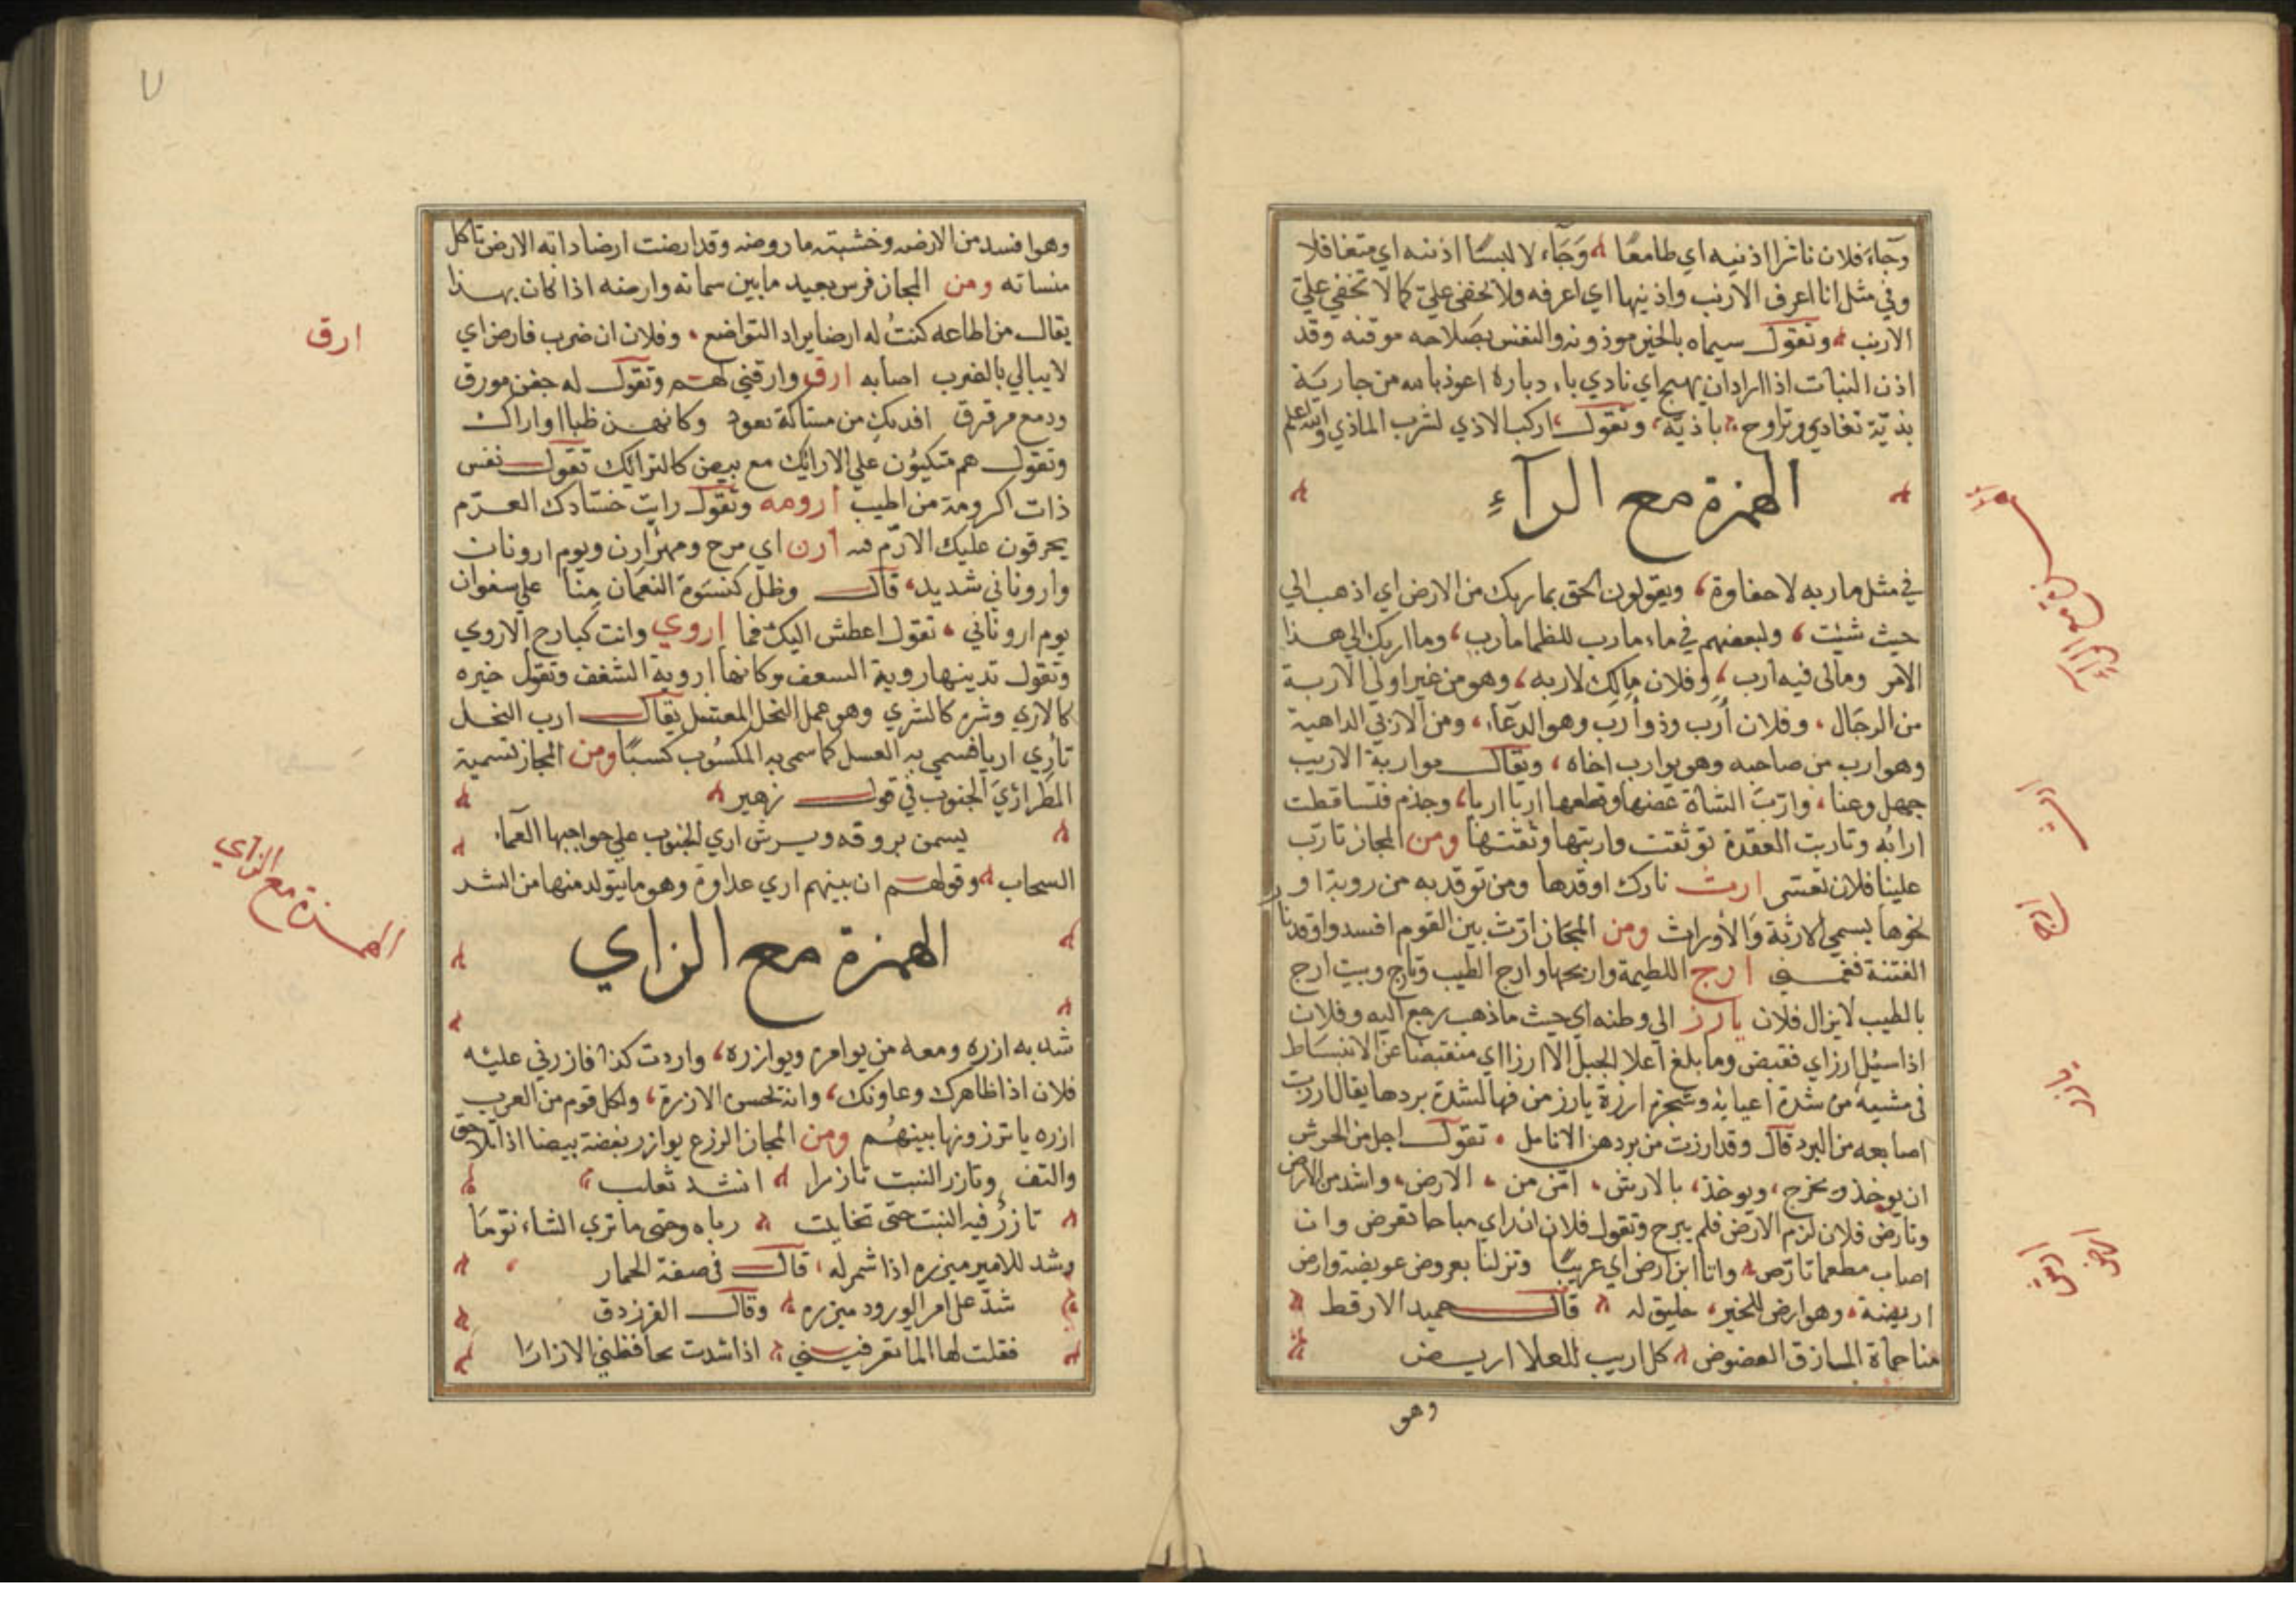 وجآء فلان ناشرا اذنيه اي طامعًا وَجَآء لا لبسًا اذنيه اي متغافلا
وفي مثل انا اعرف الارنب واذنيها اي اعرفه ولا يخفى علي كما لا تخفي علي
الارنب وتقول سيماه بالخير موذونه والنفس بصلاحه موقنه وقد
اذن النبات اذا اراد ان يهيج اي نادي باد دباره اعوذ بالله من جارية
بذيّة تغادي وتراوح باذيّة وتقول اركب الاذي لشرب الماذي والله اعلم
الهمزة مع الرآءِ
الهمزة مع الرآء
في مثل ماربه لا حفاوة ويقولون الحق بماربك من الارض اي اذهب الي
حيث شيئت ولبعضهم في ماء مارب للظما مارب وما اربك الي هذا
الامر ومالى فيه ارب وفلان مالك لاربه وهو من غير اولي الاربة
من الرجال وفلان أرب وذو أرب وهو الدعاء ومن الاربي الداهية
وهو ارب من صاحبه وهو يوارب اخاه ويقال مواربة الاريب
جهل وعنا وارّبت الشاة عضها وقطعها اربا اربا وجذم فتساقطت
ارابه وتاربت العقدة توثقت واربتها وثقتها ومن المجاز تارّب
علينا فلان تعسّى ارث نارك اوقدها ومن توقد به من روبة او
نحوها يسمي الارثة وَالأوراث ومن المجَاز ارّث بين القوم افسد واوقد نار
ارث
الفتنة فغمني ارج اللطيمة واريجها وارج الطيب وتارج وبيت ارج
ارج
بالطيب لا يزال فلان يارز الي وطنه اي حيث ما ذهب رجع اليه وفلان
اذا سيُل ارز اي فقبض وما بلغ اعلا الجبل الا ارزا اي منقبضا عن الانبسَاط
في مشيه من شدة اعيايه وشجرة ارزة يارز من فها لشدة بردها يقال ارزت
يارز
اصابعه من البرد قال وقد ارزت من بردهن الانامل تقول اجل من الحرش
ان يوخذ ويخرج ويوخذ بالارش امّن من الارض واشد من الارض
وتارّض فلان لزم الارض فلم يبرح وتقول فلان ان راي مباحا تعرض وان
اصاب مطعما تارّض وانا ابن ارض اي غريبًا ونزلنا بعروض عويضة وارض
ارش
ارض
اريضة وهو ارض للخير خليق له قال حميد الارقط
منا حماة المازق العضوض كل اريب للعلا اريض
وهو
٧
وهو افسد من الارضه وخشبته ماروضه وقد ارضت ارضا دابه الارض تاكل
منساته ومن المجاز فرس بعيد ما بين سمائه وارضه اذا كان بهذا
يقال من اطاعه كنتُ له ارضا يراد التواضع وفلان ان ضرب فارض اي
ارق
لا يبالي بالضرب اصابه ارق وارقني لهم وتقول له جفن مورق
ودمع مرقرق افديك من مستاكة بعود وكانهن ظبا اواراك
وتقول هم متكيُون علي الارائك مع بيض كالترائك تقول نفس
ذات اكرومة من اطيب ارومه وتقول رايت حسّادك العرّم
يحرقون عليك الارّم فيه أرن اي مرح ومهر أرن ويوم ارونان
واروناني شديد قال وظل كنسوة النعمان منا على سفوان
يوم اروناني تقول اعطش اليك فما اروي وانت كبارح الاروي
وتقول تدينها روية السعف وكانها اروية الشغف وتقول خيره
كالاري وشره كالشري وهو عمل النحل المعسل يقال ارب النحل
تأري اريا فسمي به العسل كما سمي به المكسُوب كسبًا ومن المجاز تسمية
المطر اريَ الجنوب في قول زهير
يسمن بروقه ويرش اري الجنوب علي حواجبها العماء
السحاب وقولهم ان بينهم اري عداوة وهو ما يتولد منها من الشد
الهمزة مع الزاي
الهمزة مع الزاي
شد به ازره ومعه من يوامره ويوازره واردت كذا فازرني عليه
فلان اذا ظاهرك وعاونك وانه لحسن الازرة ولكل قوم من العرب
ازره ياتزرونها بينهُم ومن المجاز الزرع يوازر بعضه بيضا اذا تلاحق
والتف وتازر النبت تازرا انشد ثعلب
تازرُ فيه النبت حتى تخايلت رباه وحتى ما تري الشاء نوّمَا
وشد للامير ميزره اذا شمر له قال في صفة الحمار
شدّ على امر الورود ميزره وقال الفرزدق
فقلت لها الما تعرفيني اذا شدت محافظتي الازارَا